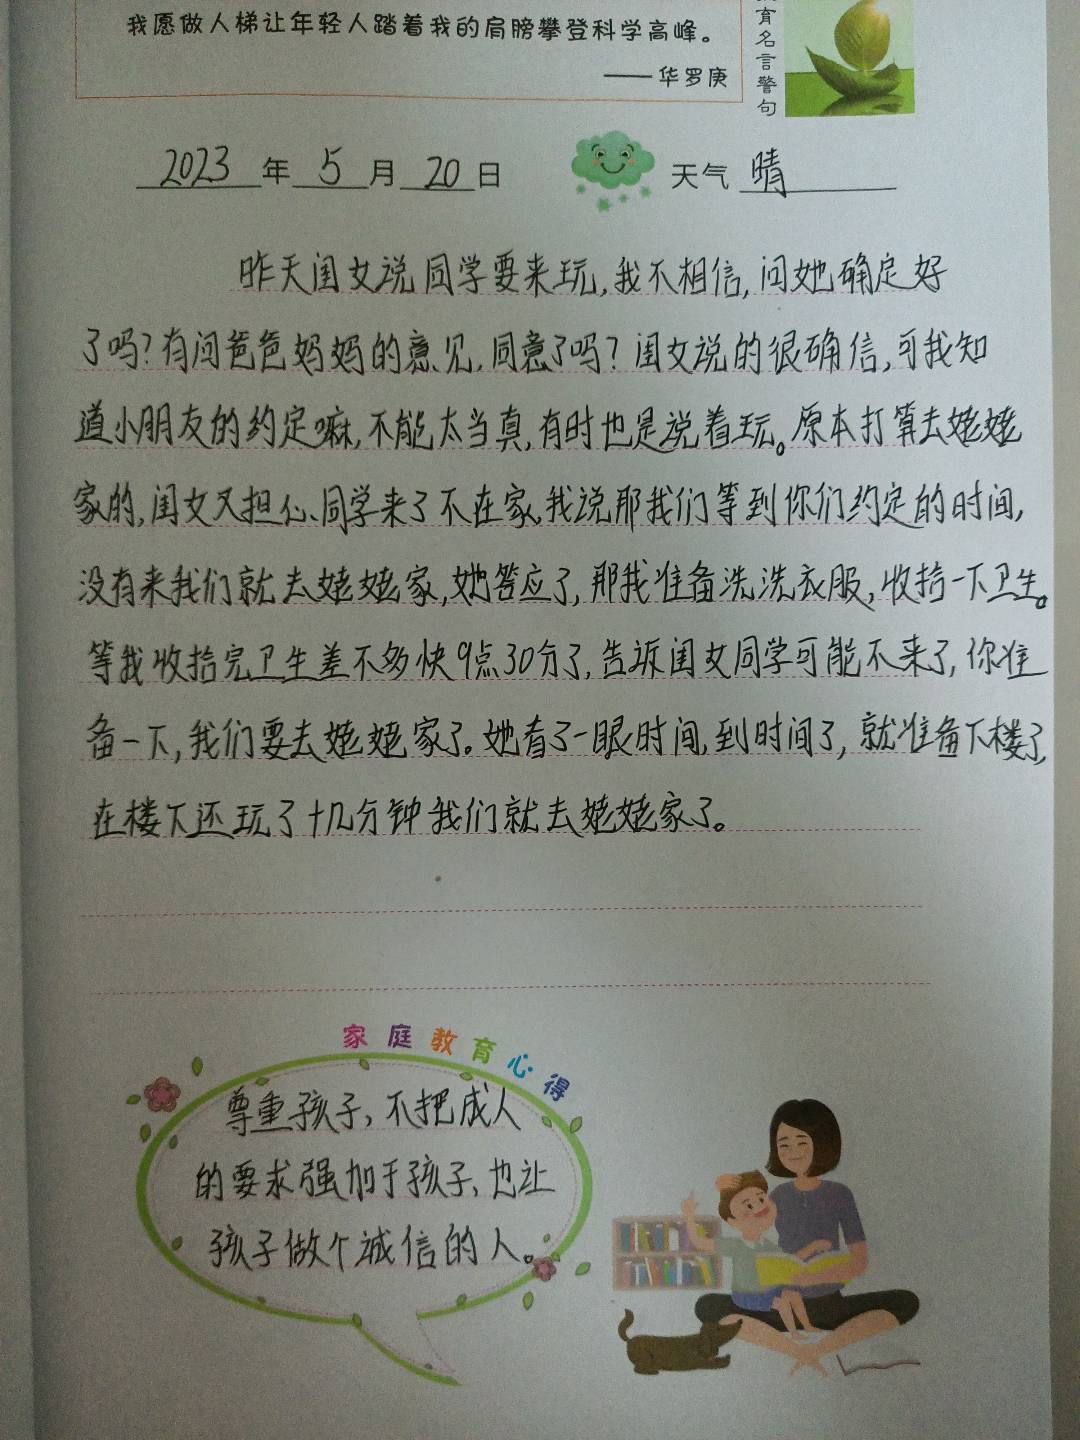 我愿做人梯让年轻人踏着我的肩膀攀登科学高峰。
——华罗庚
育名言警句
2023年5月20日 天气 晴
昨天闺女说同学要来玩,我不相信,问她确定好
了吗?有问爸爸妈妈的意见,同意了吗?闺女说的很确信,可我知
道小朋友的约定嘛,不能太当真,有时也是说着玩。原本打算去姥姥
家的,闺女又担心同学来了不在家,我说那我们等到你们约定的时间,
没有来我们就去姥姥家,她答应了,那我准备洗洗衣服,收拾一下卫生。
等我收拾完卫生差不多快9点30分了,告诉闺女同学可能不来了,你准
备一下,我们要去姥姥家了。她看了一眼时间,到时间了,就准备下楼了,
在楼下还玩了十几分钟我们就去姥姥家了。
家庭教育心得
尊重孩子,不把成人
的要求强加于孩子,也让
孩子做个诚信的人。